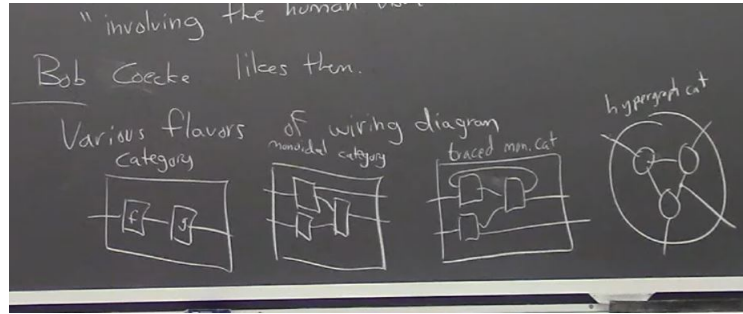 " involving the human
Bob Coecke likes them.
Various flavors of wiring diagram
Category
monoidal category
traced mon. cat
hypergraph cat
f g